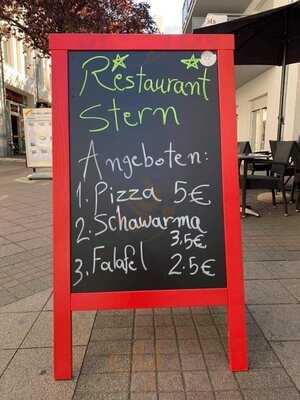 Restaurant
Stern
Angeboten:
1. Pizza 5€
2. Schawarma
3,5€
3. Falafel 2.5€